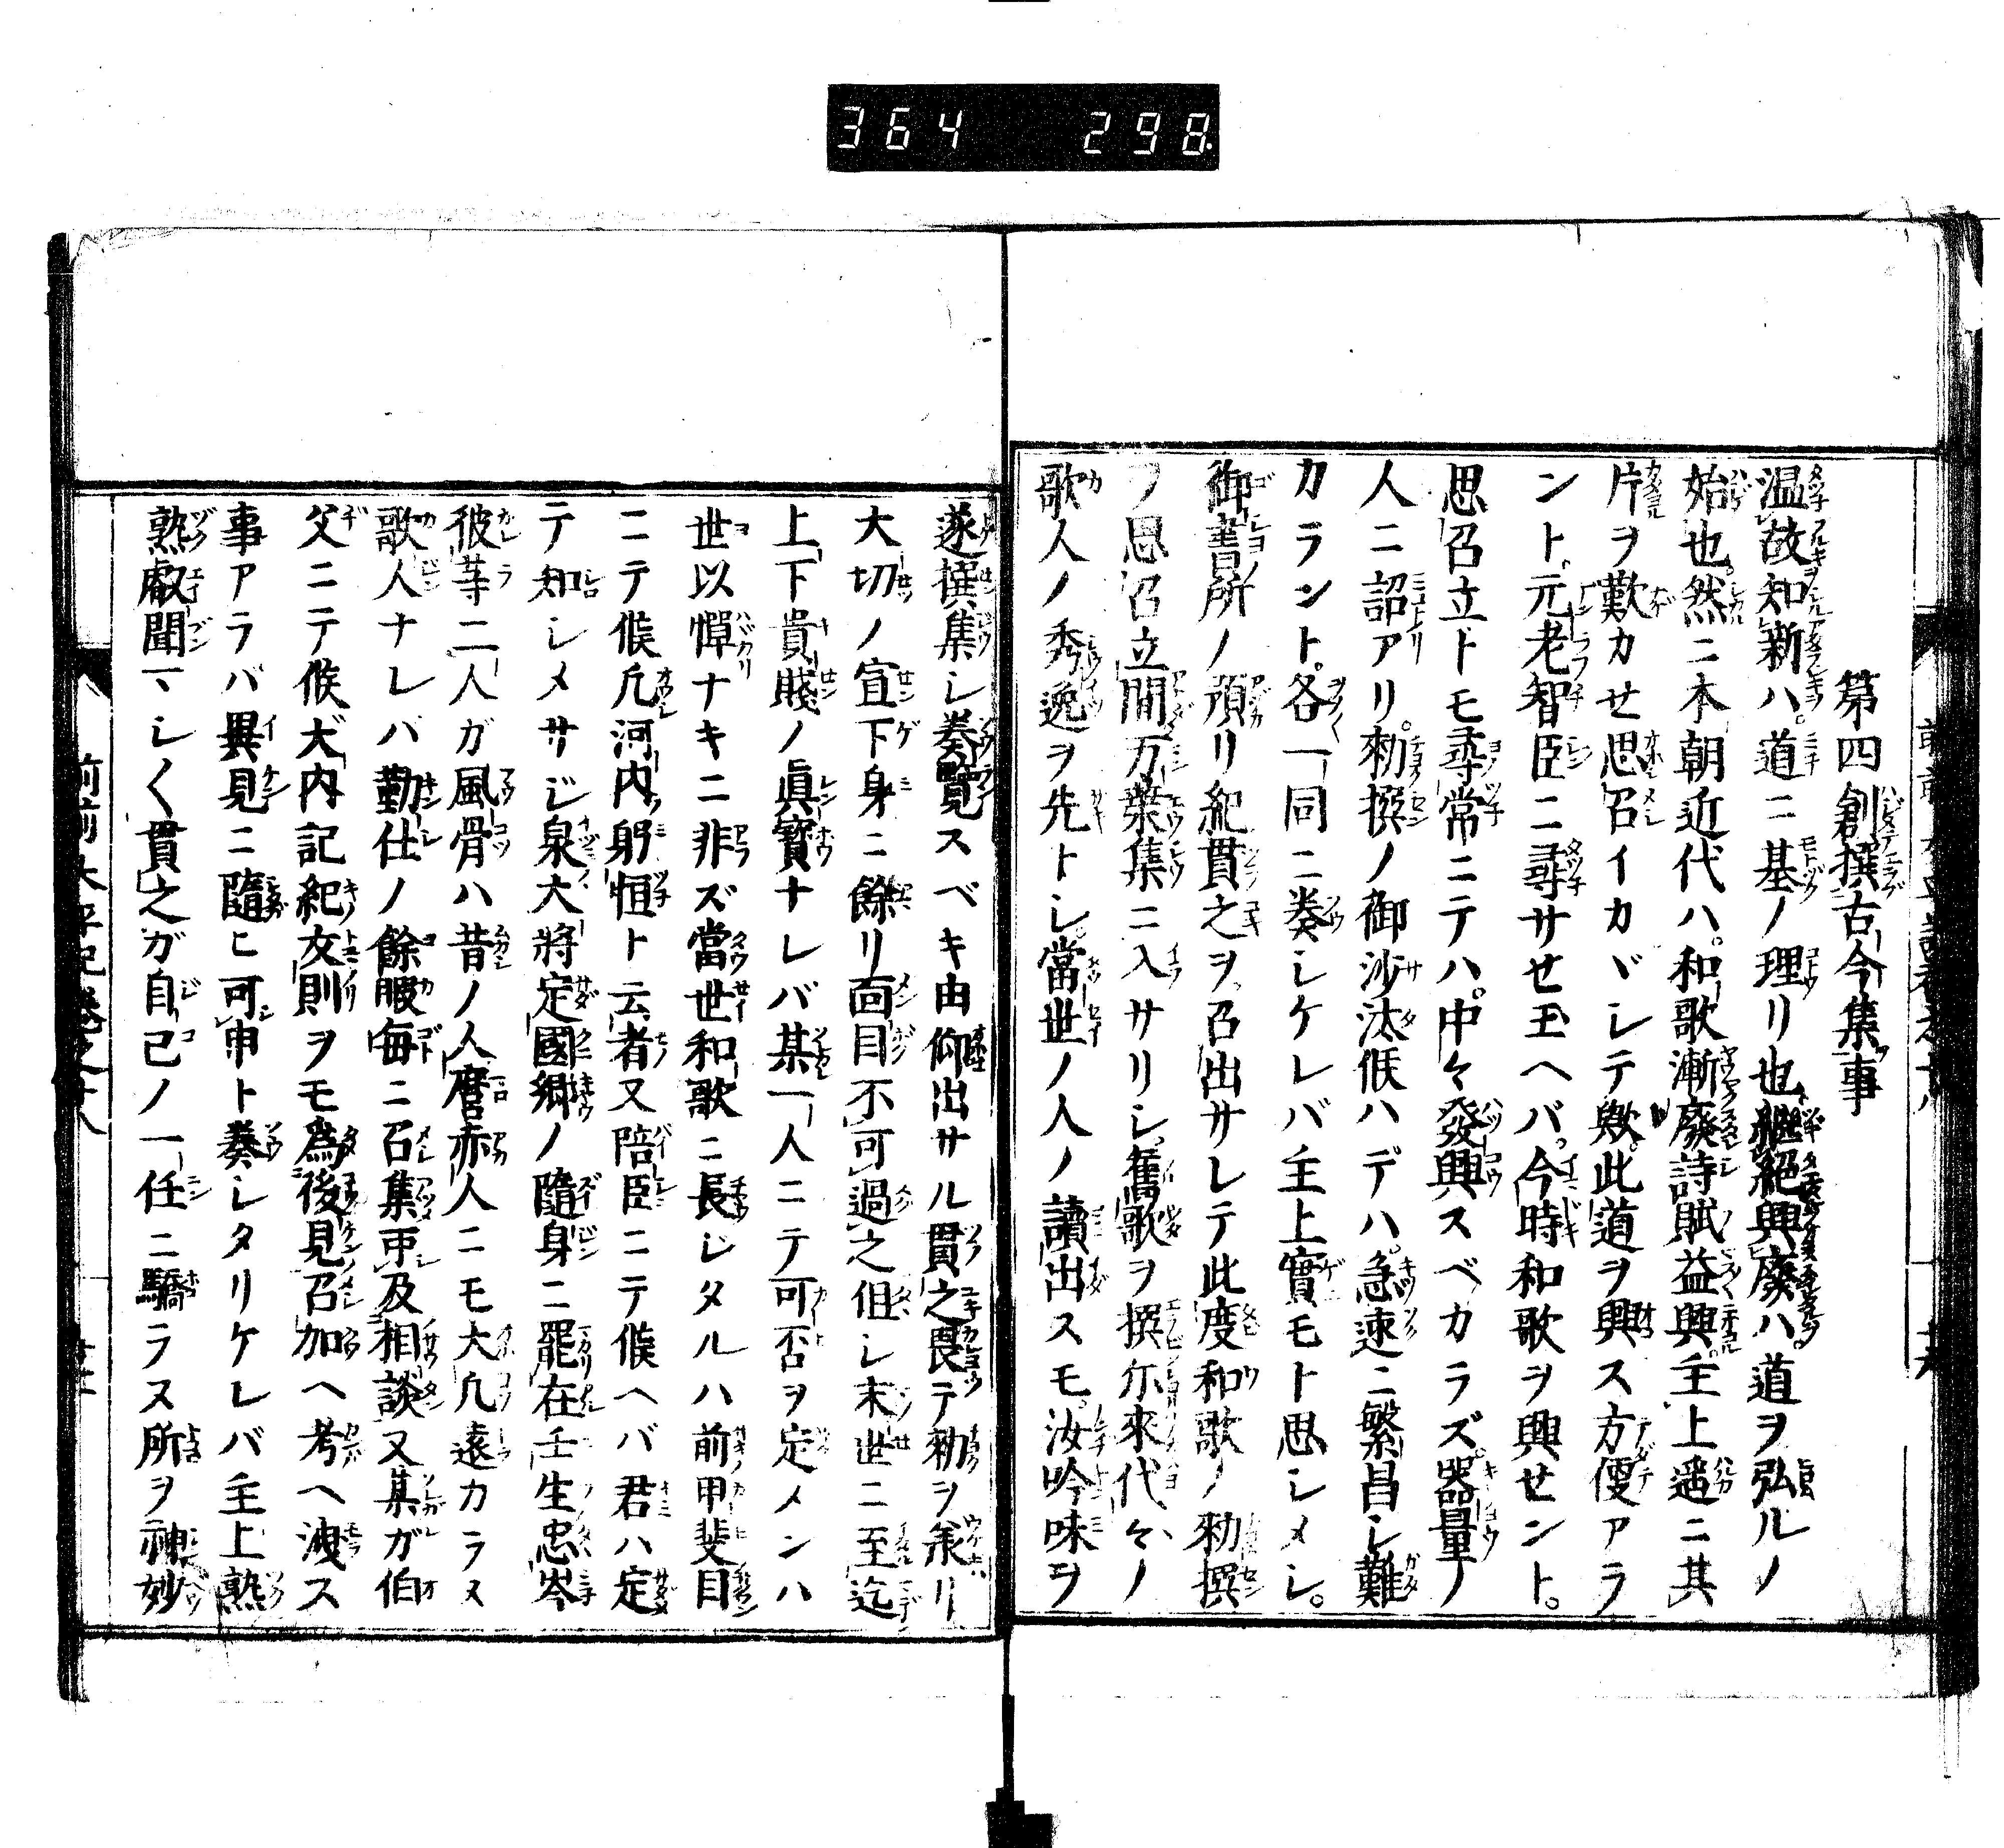 364 298
第四創撰古今集事
温故知新ハ。道ニ基ノ理リ也。継絶興廃ハ。道ヲ弘ルノ
始也。然ニ本朝近代ハ。和歌漸廢詩賦益興。主上遥ニ其
片ヲ歎カせ思召イカヾシテ歟。此道ヲ興ス方便アラ
ント。元老智臣ニ尋サせ玉ヘバ。今時和歌ヲ興せント。
思召立ドモ尋常ニテハ。中々發興スベカラズ。器量ノ
人ニ詔アリ。勅撰ノ御沙汰候ハデハ。急速ニ繁昌シ難
カラント。各一同ニ奏シケレバ主上實モト思シメシ。
御書所ノ預リ紀貫之ヲ。召出サレテ此度和歌ノ勅撰
ヲ思召立間万葉集ニ入サリシ。舊歌ヲ撰尓來代々ノ
歌人ノ秀逸ヲ先トシ。當世ノ人ノ讀出スモ。汝吟味ヲ
遂撰集シ奏覽スベキ由仰出サル貫之畏テ勅ヲ承リ
大切ノ宣下身ニ餘リ面目不可過之但シ末世ニ至迄
上下貴賤ノ眞寶ナレバ某一人ニテ可否ヲ定メンハ
世以憚ナキニ非ズ當世和歌ニ長ジタルハ前甲斐目
ニテ候凡河内躬恒ト云者又陪臣ニテ候ヘバ君ハ定
テ知シメサジ泉大將定國郷ノ隨身ニ罷在壬生忠岑
彼等二人ガ風骨ハ昔ノ人麿赤人ニモ大凡遠カラス
歌人ナレバ勤仕ノ餘暇毎ニ召集申及相談又某ガ伯
父ニテ候大内記紀友則ヲモ爲後見召加ヘ考ヘ洩ス
事アラバ異見ニ隨ヒ可申ト奏シタリケレバ主上熟
熟叡聞マシ〱貫之ガ自己ノ一任ニ驕ラヌ所ヲ神妙
前前太平記巻之十八